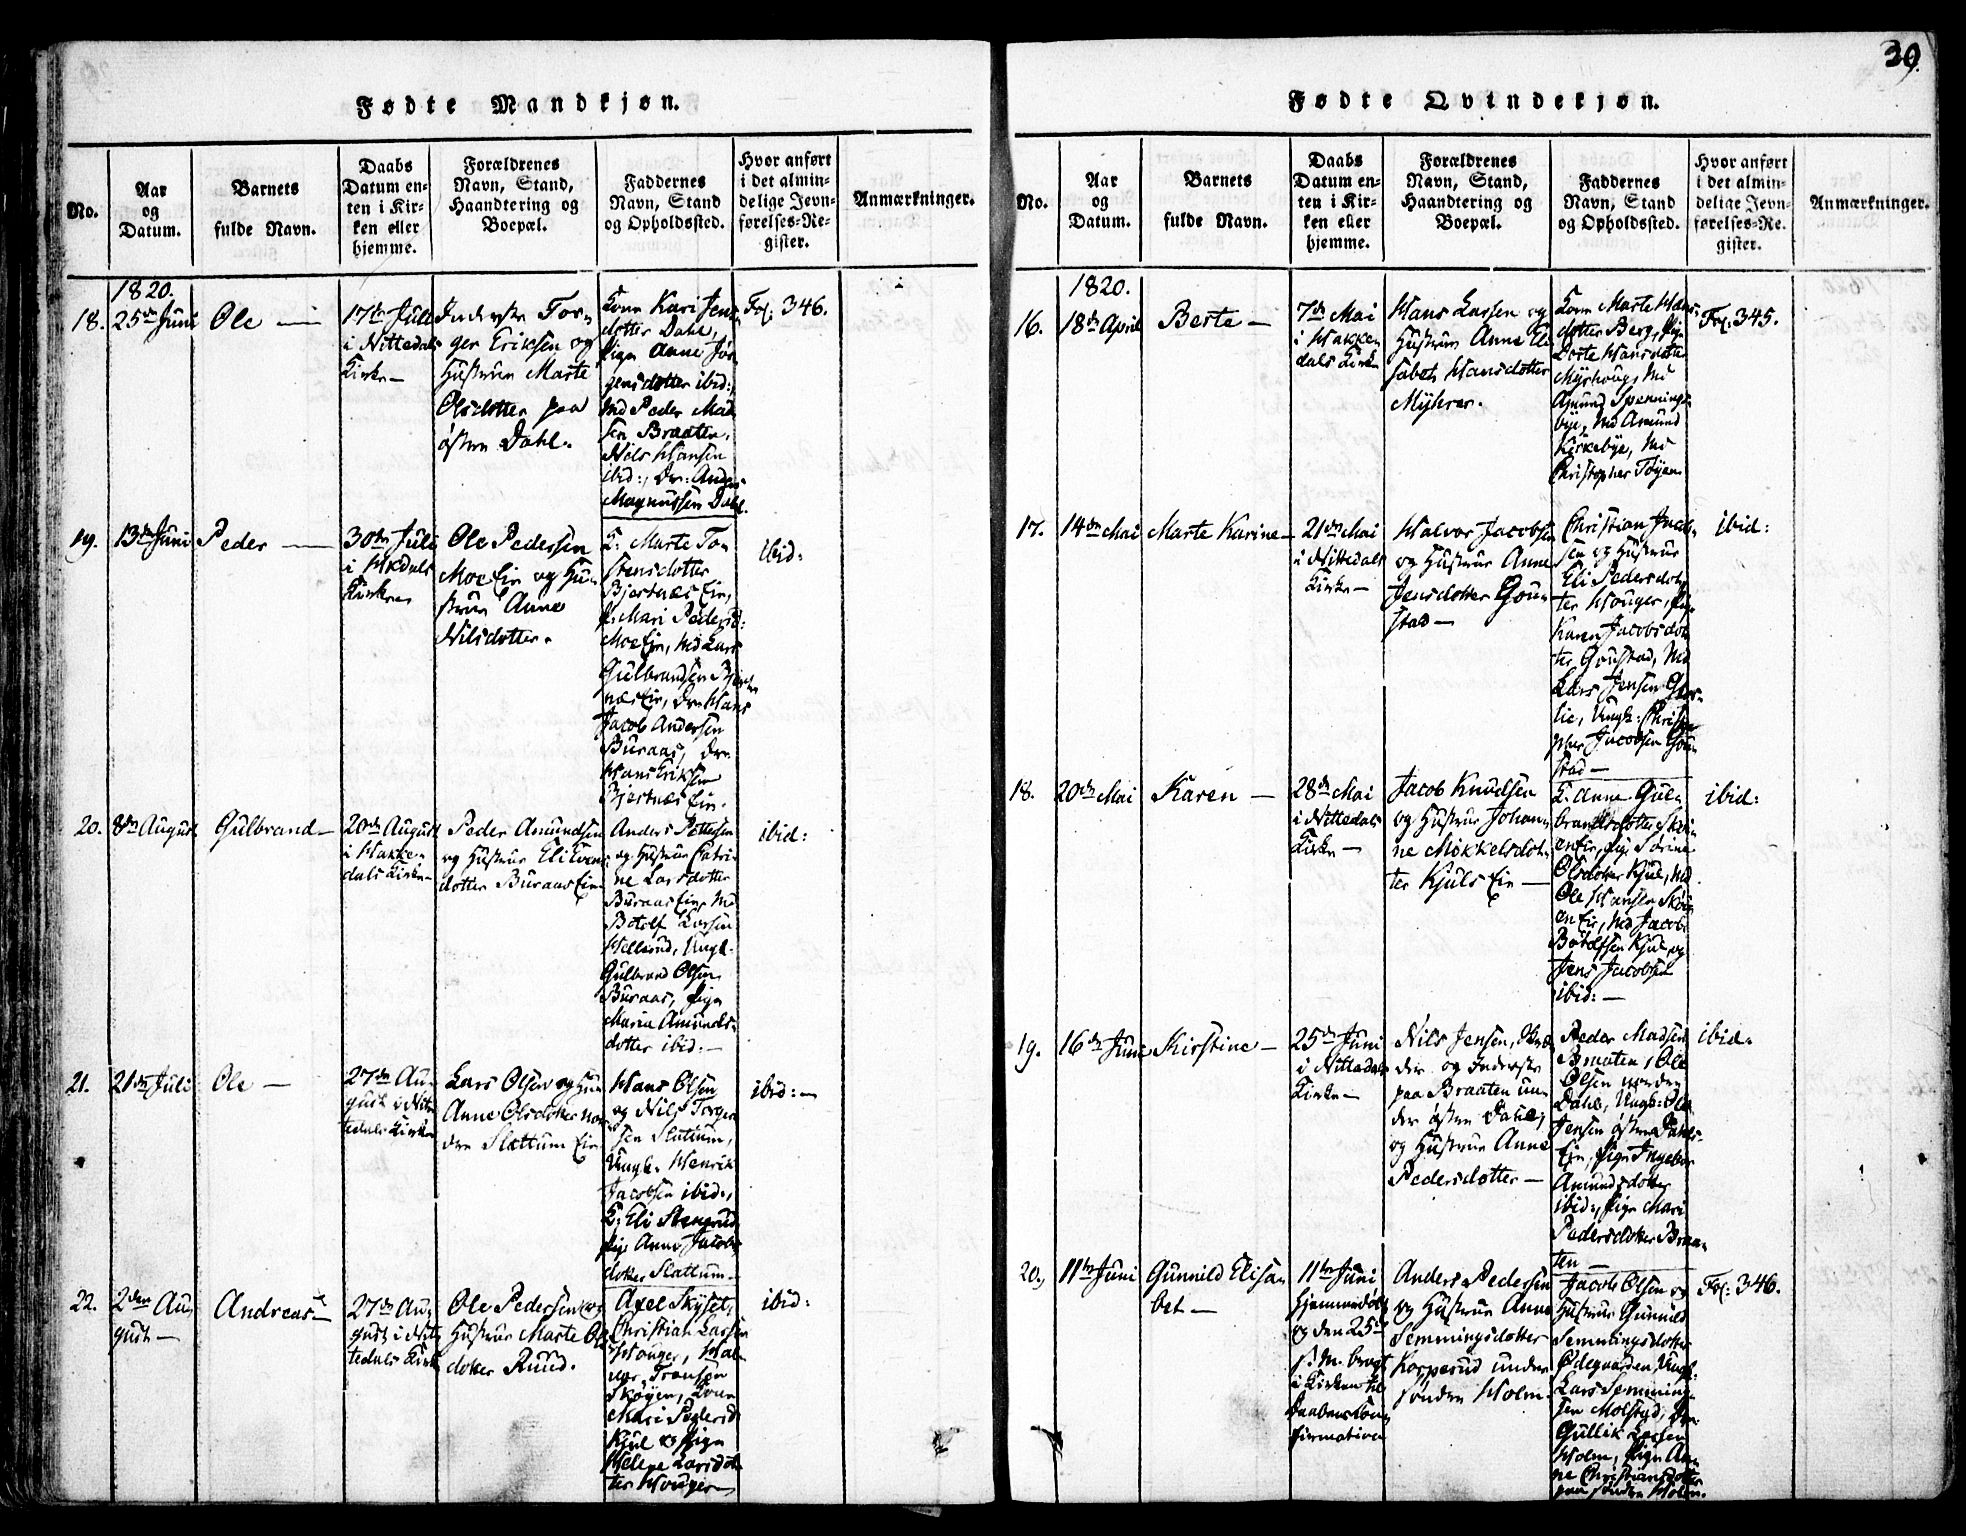 39.
Fødte Mandkjøn.
No.
Aar
og
Datum.
Barnets
fulde Navn.
Daabs
Datum en-
ten i Kir-
ken eller
hjemme.
Forældrenes
Navn, Stand,
Haandtering og
Boepæl.
Faddernes
Navn, Stand
og Opholdssted.
Hvor anført
i det almin-
delige Jevn-
førelses-Re-
gister.
Anmærkninger.
1820.
18.
25de Juni
Ole —
17de Juli
i Nittedals
Kirke —
Inderste Tor-
ger Eriksen og
Hustrue Marte
Olsdotter paa
østre Dahl.
Kone Kari Jens-
dotter Dahl,
Pige Anne Jør-
gensdotter ibid:,
Md Peder Mad-
sen Braaten,
Nils Hansen
ibid:, Dr: Anders
Magnussen Dahl.
Fol: 346.
19.
13de Juni
Peder —
30te Juli
i Hkdals
Kirke
Ole Pedersen
Moe Eie og Hu-
strue Anne
Nilsdotter.
K: Marte To-
stensdotter
Bjertnæs Eie,
P: Mari Pedersd:
Moe Eie, Md Lars
Gulbrandsen Bjert-
næs Eie, Dr Hans
Jacob Andersen
Buraas, Dr
Hans Eriksen
Bjertnæs Eie.
ibid:
20.
8de August
Gulbrand —
20de August
i Hakke-
dals Kirke
Peder Amundsen
og Hustrue Eli Evens-
dotter Buraas Eie
Anders Pettersen
og Hustrue Catri-
ne Larsdotter
Buraas Eie, Md
Botolf Larsen
Hellerud, Ungk.
Gulbrand Olsen
Buraas, Pige
Maria Amunds-
dotter ibid: —
ibid:
21.
21de Juli
Ole —
27de Au-
gust i Nit-
tedals Kirke
Lars Olsen og Hu
Anne Olsdotter nor-
dre Slattum Eie
Hans Olsen
og Nils Torger-
sen Slattum,
Ungk. Henrik
Jacobsen ibid:,
K: Eli Stenerud
Pige Anne Jacobs-
dotter Slattum.
ibid: —
22.
2den Au-
gust —
Andreas —
27de Au-
gust i Nit-
tedals Kirke
Ole Pedersen og
Hustrue Marte Ols
dotter Ruud.
Axel Skyset,
Christian Larsen
Houger, Hal-
vor Fransen
Skøyen, Kone
Mari Pedersd:
Kjul og Pige
Helene Larsdot-
ter Houger —
ibid:
Fødte Qvindekjøn.
No.
Aar
og
Datum.
Barnets
fulde Navn.
Daabs
Datum en-
ten i Kir-
ken eller
hjemme.
Forældrenes
Navn, Stand,
Haandtering og
Boepæl.
Faddernes
Navn, Stand
og Opholdssted.
Hvor anført
i det almin-
delige Jevn-
førelses-Re-
gister.
Anmærkninger.
1820.
16.
18de April
Berte —
7de Mai
i Hakke-
dals Kirke
Hans Larsen og
Hustrue Anne Eli-
sabet Hansdotter
Myhrer.
Kone Marte Hans-
dotter Berg, Pige
Dorte Hansdotter
Myrhoug, Md
Amund Spennings-
bye, Md Amund
Kirkebye, Md
Christopher Tøyen
Fol: 345.
17.
14de Mai
Marte Karine —
21de Mai
i Nittedals
Kirke —
Halvor Jacobsen
og Hustrue Anne
Jensdotter Gou-
stad —
Christian Jacob-
sen og Hustrue
Eli Pedersdot-
ter Houger, Pige
Karen Jacobsdot-
ter Goustad, Md
Lars Jensen
lie, Ungk: Christo-
pher Jacobsen Gou-
stad —
ibid:
18.
20de Mai
Karen —
28de Mai
i Nittedals
Kirke —
Jacob Knudsen
og Hustrue Johan-
ne Mikkelsdot-
ter Kjuls Eie —
K: Anne Gul-
brandsdotter Skøi-
en Eie, Pige Sørine
Olsdotter Kjul, Md
Ole Hansen Skøi-
en Eie, Md Jacob
Botolfsen Kjul og
Jens Jacobsen
ibid: —
ibid:
19.
16de Juni
Kirstine —
25de Juni
i Nittedals
Kirke —
Nils Jensen,
der og Inderste
paa Braaten un-
der østre Dahl,
og Hustrue Anne
Pedersdotter —
Peder Madsen
Braaten, Ole
Olsen nordre
Dahl, Ungk: Ole
Jensen østre Dahls-
Eie, Pige Ingebor
Amundsdotter
ibid:, Pige Mari
Pedersdotter Braa-
ten —
ibid:
20.
11te Juni
Gunnild Elisa-
bet —
11te Juni
hjemmedøbt
og den 25de
s. M. bragt
i Kirken til
Daabens Con-
firmation
Anders Pedersen
og Hustrue Anne
Semmingsdotter
Korperud under
søndre Holm.
Jacob Olsen og
Hustrue Gunnild
Semmingsdotter
Ødegaarden, Ungk.
Lars Semming-
sen Molstad, Dr:
Gullik Larsen
Holm, Pige An-
ne Christiansdotter
paa søndre Holm.
Fol: 346.